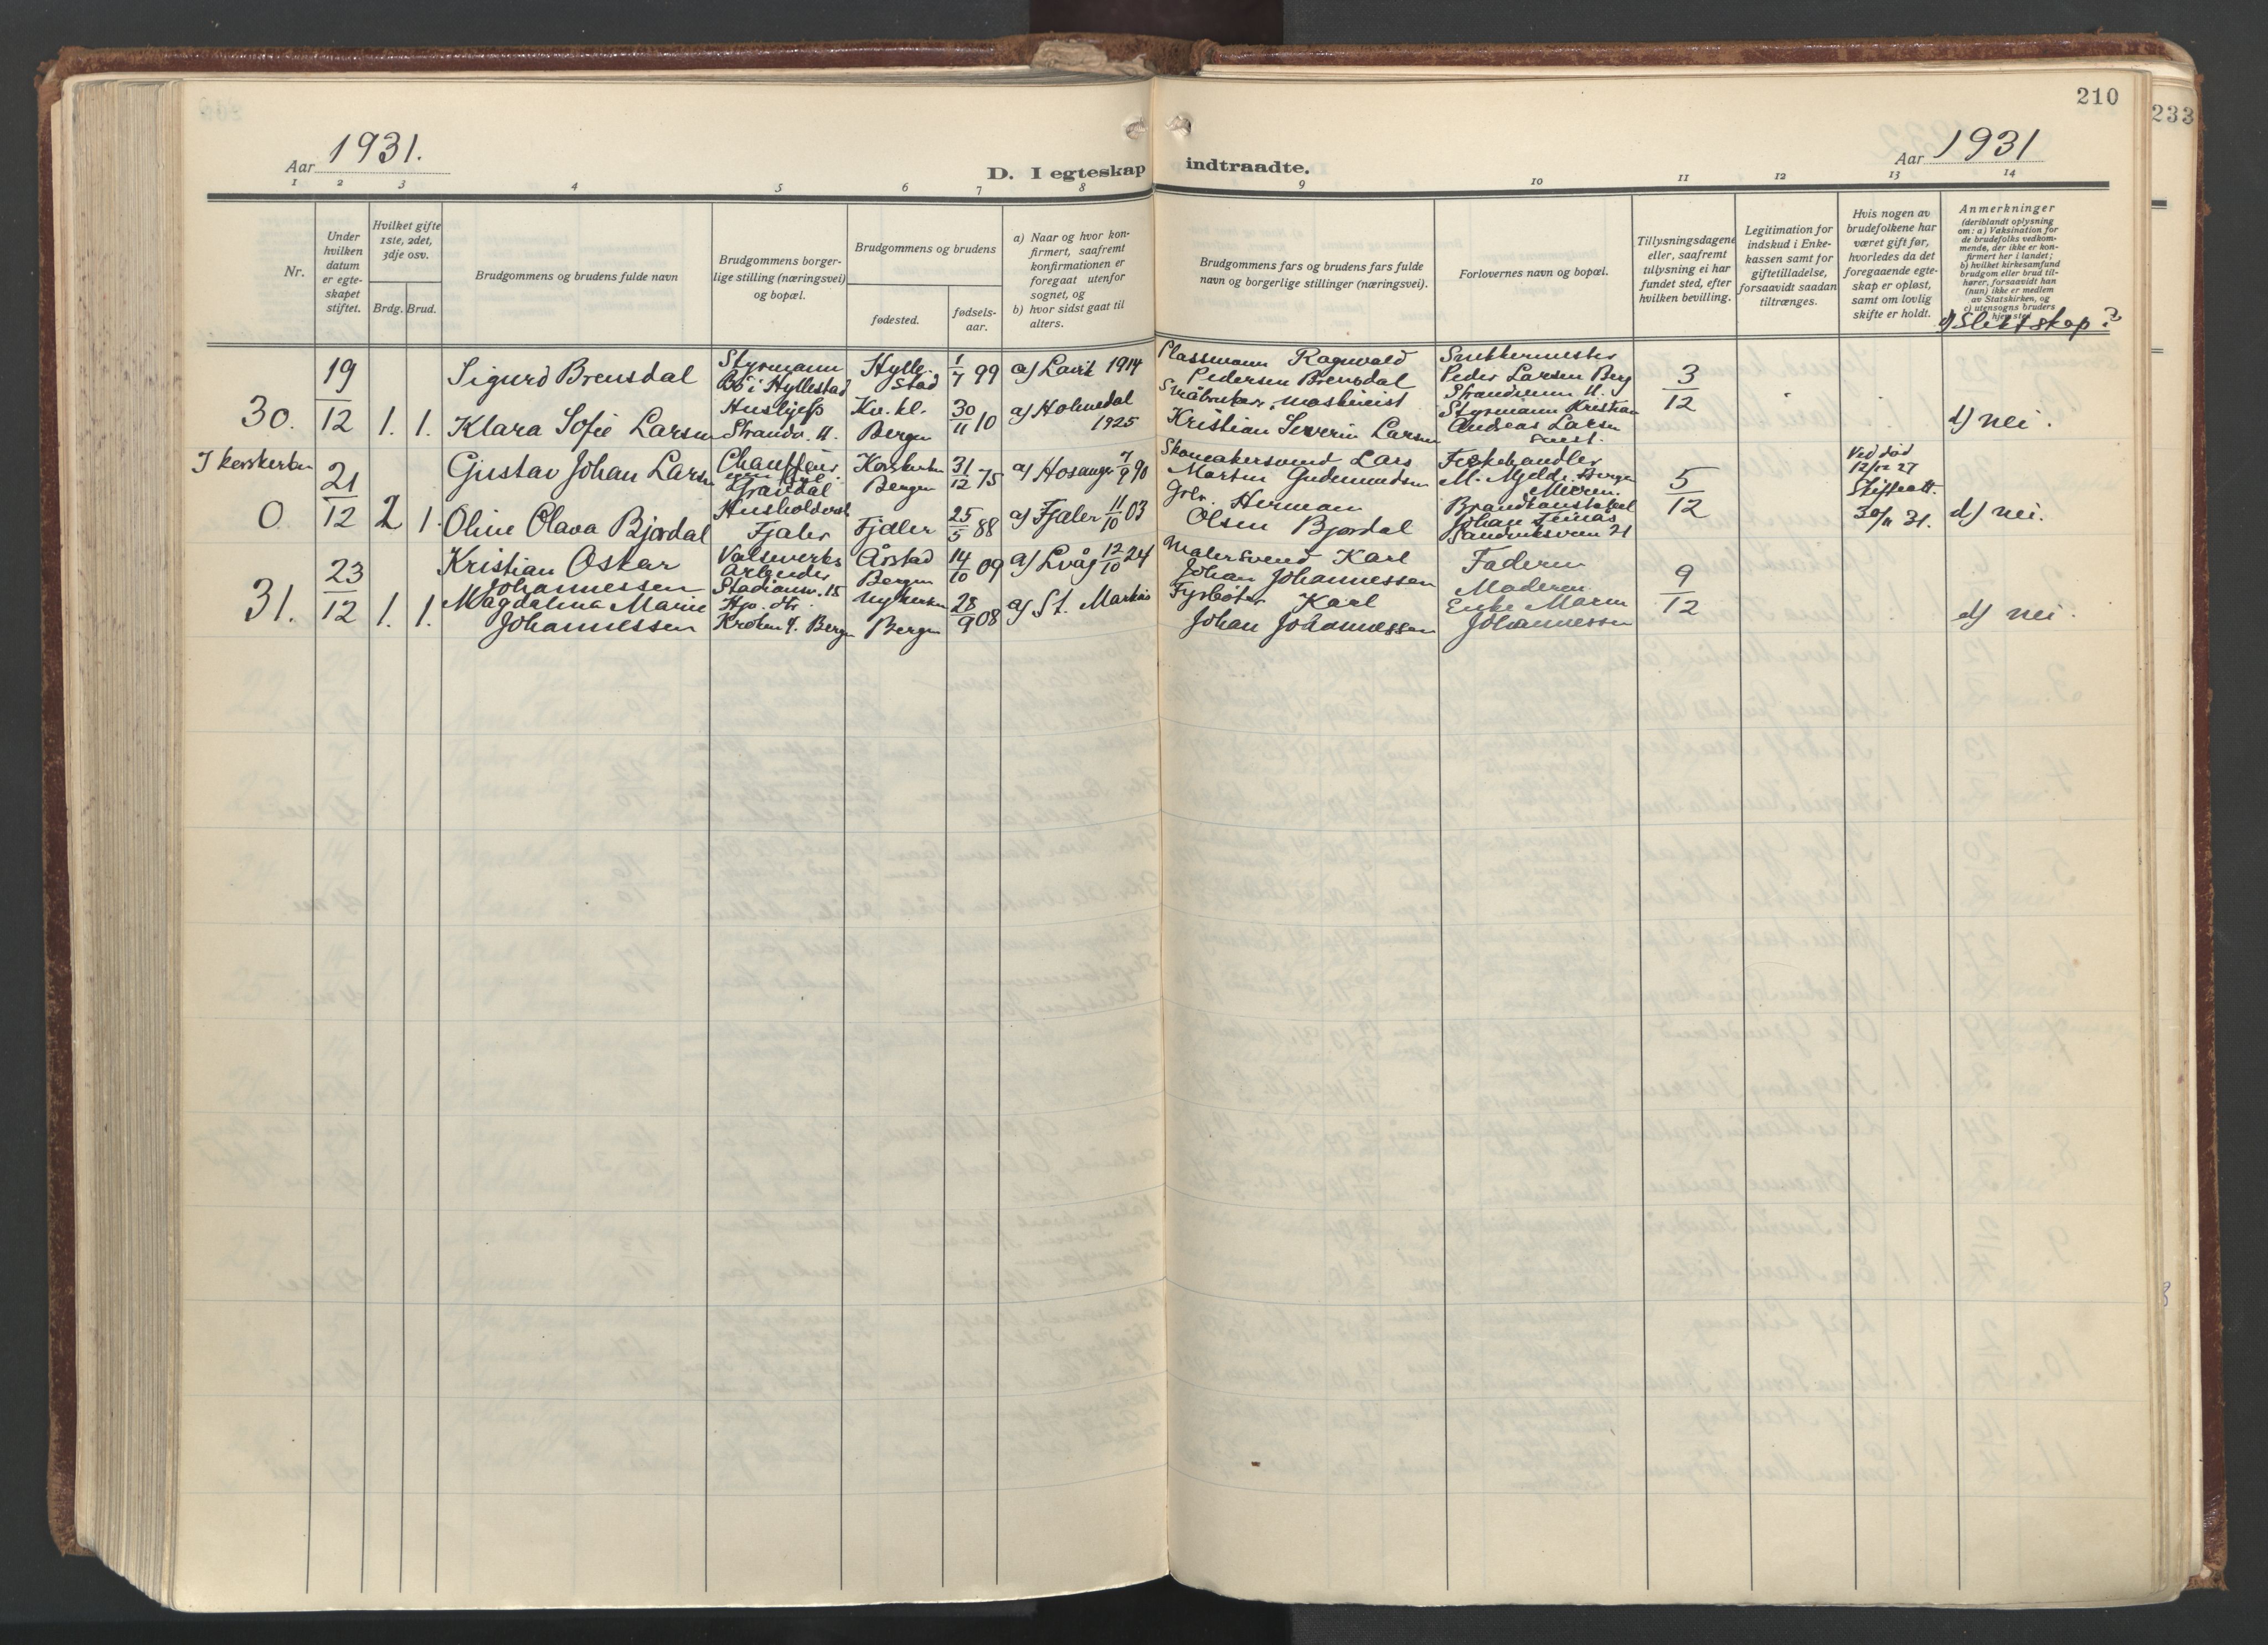 210
233
Aar 1931.
D. I egteskap indtraadte.
Aar 1931
1 2 3 4 5 6 7 8 9 10 11 12 13 14
Nr.
Under
hvilken
datum
er egte-
skapet
stiftet.
Hvilket gifte
1ste, 2det,
3dje osv.
Brdg. Brud.
Brudgommens og brudens fulde navn
Brudgommens borger-
lige stilling (næringsvei)
og bopæl.
Brudgommens og brudens
fødested.
fødsels-
aar.
a) Naar og hvor kon-
firmert, saafremt
konfirmationen er
foregaat utenfor
sognet, og
b) hvor sidst gaat til
alters.
Brudgommens fars og brudens fars fulde
navn og borgerlige stillinger (næringsvei).
Forlovernes navn og bopæl.
Tillysningsdagene
eller, saafremt
tillysning ei har
fundet sted, efter
hvilken bevilling.
Legitimation for
indskud i Enke-
kassen samt for
giftetilladelse,
forsaavidt saadan
tiltrænges.
Hvis nogen av
brudefolkene har
været gift før,
hvorledes da det
foregaaende egte-
skap er opløst,
samt om lovlig
skifte er holdt.
Anmerkninger
(deriblandt oplysning
om: a) Vaksination for
de brudefolks vedkom-
mende, der ikke er kon-
firmert her i landet;
b) hvilket kirkesamfund
brudgom eller brud til-
hører, forsaavidt han
(hun) ikke er medlem
av Statskirken, og
c) utensogns bruders
hjemsted
d) Slektskap?
30.
19/12
1. 1.
Sigurd Brensdal
Klara Sofie Larsen
Styrmann
Bö i Hyllestad
Huslig
Strandv. 11.
Hylle-
stad
Kv. kl.
Bergen
1/7 99
30/11 10
a) Lavik 1914
a) Holmedal
1925
Plassmann Ragnvald
Pedersen Brensdal
Småbruker, maskinist
Kristian Severin Larsen
Peder Larsen Berg
Strandveien 11.
Styrmann Kristian
Andreas Larsen
3/12
d) nei.
I korskirken
0.
21/12
2 1.
Gustav Johan Larsen
Oline Olava Bjordal
Chauffeur
Gravdal
Fjaler
Korskirken
Bergen
Fjaler
31/12 75
25/5 88
a) Hosanger 7/9 90
a) Fjaler 11/10 03
Skomakersvend Lars
Martin Gudmundsen
Herman
Olsen Bjordal
Fiskehandler
M. Mjelde, Bergen
Johan
Sandviksveien 21
5/12
Ved død
12/12 27
Skifteatt.
30/11 31.
d) nei.
31.
23/12
1. 1.
Kristian Oskar
Johannessen
Magdalena Marie
Johannessen
Valseverks
Arbeider
Stadionv. 15
Kroken 4. Bergen
Årstad
Bergen
Nykirken
Bergen
14/10 09
28/9 08
a) Lvåg 12/10 24
a) St. Markus
Malersvend Karl
Johan Johannessen
Fyrbøter Karl
Johan Johannessen
Faderen
Moderen
Enke Maren
Johannessen
9/12
d) nei.